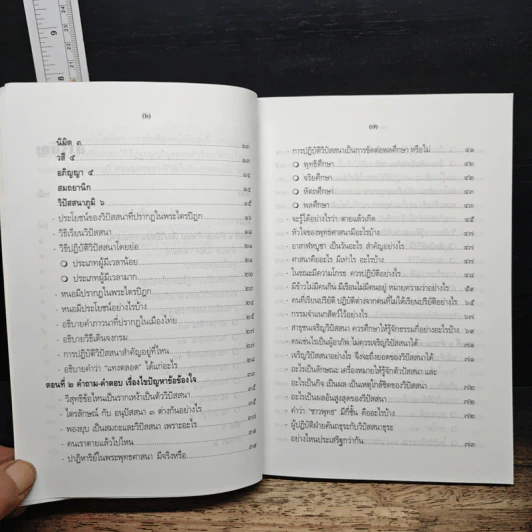 (๖)
นิมิต ๓
วสี ๕
อภิญญา ๕
สมถยานิก
วิปัสสนาภูมิ ๖
- ประโยชน์ของวิปัสสนาที่ปรากฏในพระไตรปิฎก
- วิธีเรียนวิปัสสนา
- วิธีปฏิบัติวิปัสสนาโดยย่อ
ประเภทผู้มีเวลาน้อย
ประเภทผู้มีเวลามาก
- หนอมีปรากฏในพระไตรปิฎก
- หนอมีประโยชน์อย่างไรบ้าง
- อธิบายคำภาวนาที่ปรากฏในเมืองไทย
- อธิบายวิธีเดินจงกรม
- การปฏิบัติวิปัสสนาสำคัญอยู่ที่ไหน
- อธิบายคำว่า "แทงตลอด" ได้แก่อะไร
ตอนที่ ๒ คำถาม-คำตอบ เรื่องไขปัญหาข้อข้องใจ
- วิสุทธิข้อไหนเป็นรากเหง้าเป็นตัววิปัสสนา
- ไตรลักษณ์ กับ อนุปัสสนา ๓ ต่างกันอย่างไร
- พองยุบ เป็นสมถะและวิปัสสนา เพราะอะไร
- คนเราตายแล้วไปไหน
- ปาฏิหาริย์ในพระพุทธศาสนา มีจริงหรือ
(๗)
- การปฏิบัติวิปัสสนาเป็นการขัดต่อพลศึกษา หรือไม่
พุทธิศึกษา
จริยศึกษา
หัตถศึกษา
พลศึกษา
- จะรู้ได้อย่างไรว่า ตายแล้วเกิด
- หัวใจของพุทธศาสนามีอะไรบ้าง
- อาสาฬหบูชา เป็นวันอะไร สำคัญอย่างไร
- ศาสนาคืออะไร มีเท่าไร อะไรบ้าง
- ในขณะมีความโกรธ ควรปฏิบัติอย่างไร
- มีข้าวไม่มีคนกิน มีเรือนไม่มีคนอยู่ หมายความว่าอย่างไร
- คนที่เรียนปริยัติ ปฏิบัติต่างจากคนที่ไม่ได้เรียนปริยัติอย่างไร
- กรรมจำแนกสัตว์ไว้อย่างไร
- สาธุชนเจริญวิปัสสนา ควรศึกษาให้รู้จักธรรมกี่อย่างอะไรบ้าง
- คนเช่นไรเป็นผู้อาภัพ ไม่ควรเจริญวิปัสสนาได้
- เจริญวิปัสสนาอย่างไร จึงจะถึงยอดของวิปัสสนาได้
- อะไรเป็นลักษณะ เครื่องหมายให้รู้จักตัววิปัสสนา และ
อะไรเป็นกิจ เป็นผล เป็นเหตุใกล้ชิดของวิปัสสนา
- อะไรเป็นผลอันสูงสุดของวิปัสสนา
- คำว่า "ชาวพุทธ" มีกี่ชั้น คืออะไรบ้าง
- ผู้ปฏิบัติฝ่ายคันถธุระกับวิปัสสนาธุระ
อย่างไหนประเสริฐกว่ากัน